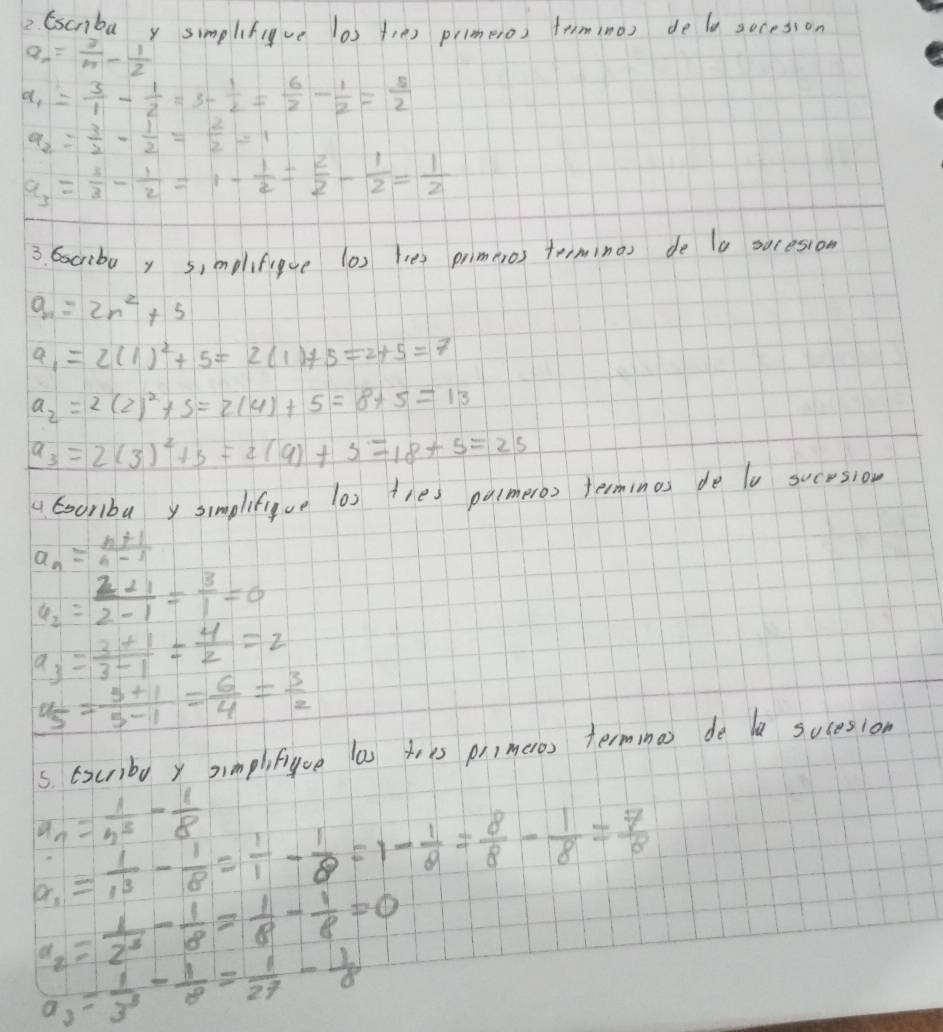 2. Escriba y simplifique los tres primeros terminos de la sucesion
aₙ = 3/n - 1/2
a₁ = 3/1 - 1/2 = 3 - 1/2 = 6/2 - 1/2 = 5/2
a₂ = 3/2 - 1/2 = 2/2 = 1
a₃ = 3/3 - 1/2 = 1 - 1/2 = 2/2 - 1/2 = 1/2
3. Escriba y simplifique los tres primeros terminos de la sucesion
aₙ = 2n² + 5
a₁ = 2(1)² + 5 = 2(1) + 5 = 2 + 5 = 7
a₂ = 2(2)² + 5 = 2(4) + 5 = 8 + 5 = 13
a₃ = 2(3)² + 5 = 2(9) + 5 = 18 + 5 = 25
4. Escriba y simplifique los tres primeros terminos de la sucesion
aₙ = n+1/n-1
a₂ = 2+1/2-1 = 3/1 = 0
a₃ = 3+1/3-1 = 4/2 = 2
a₅ = 5+1/5-1 = 6/4 = 3/2
5. Escriba y simplifique los tres primeros terminos de la sucesion
aₙ = 1/n³ - 1/8
a₁ = 1/1³ - 1/8 = 1/1 - 1/8 = 1 - 1/8 = 8/8 - 1/8 = 7/8
a₂ = 1/2³ - 1/8 = 1/8 - 1/8 = 0
a₃ = 1/3³ - 1/8 = 1/27 - 1/8